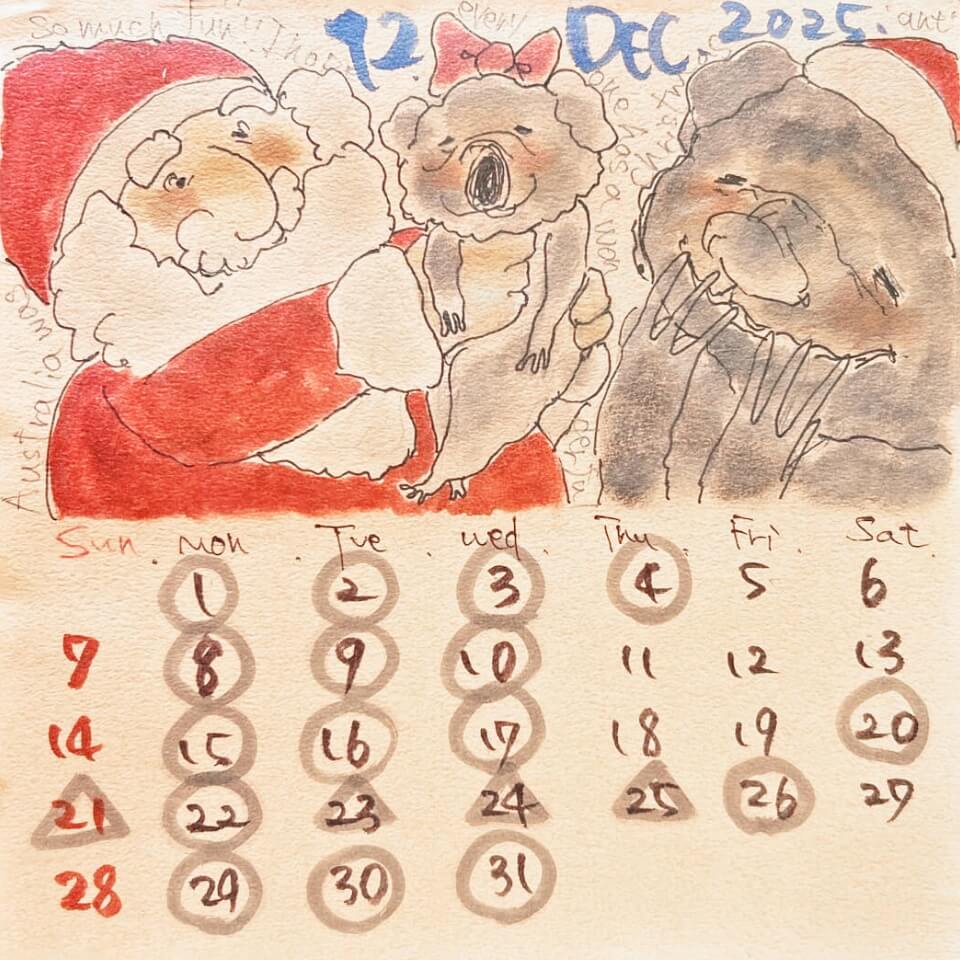 So much fun!! Tho
12. DEC. 2025.
every
ant
one
Christmas
Australia was
Sun. Mon. Tue. wed. Thu. Fri. Sat.
1 2 3 4 5 6
7 8 9 10 11 12 13
14 15 16 17 18 19 20
21 22 23 24 25 26 27
28 29 30 31